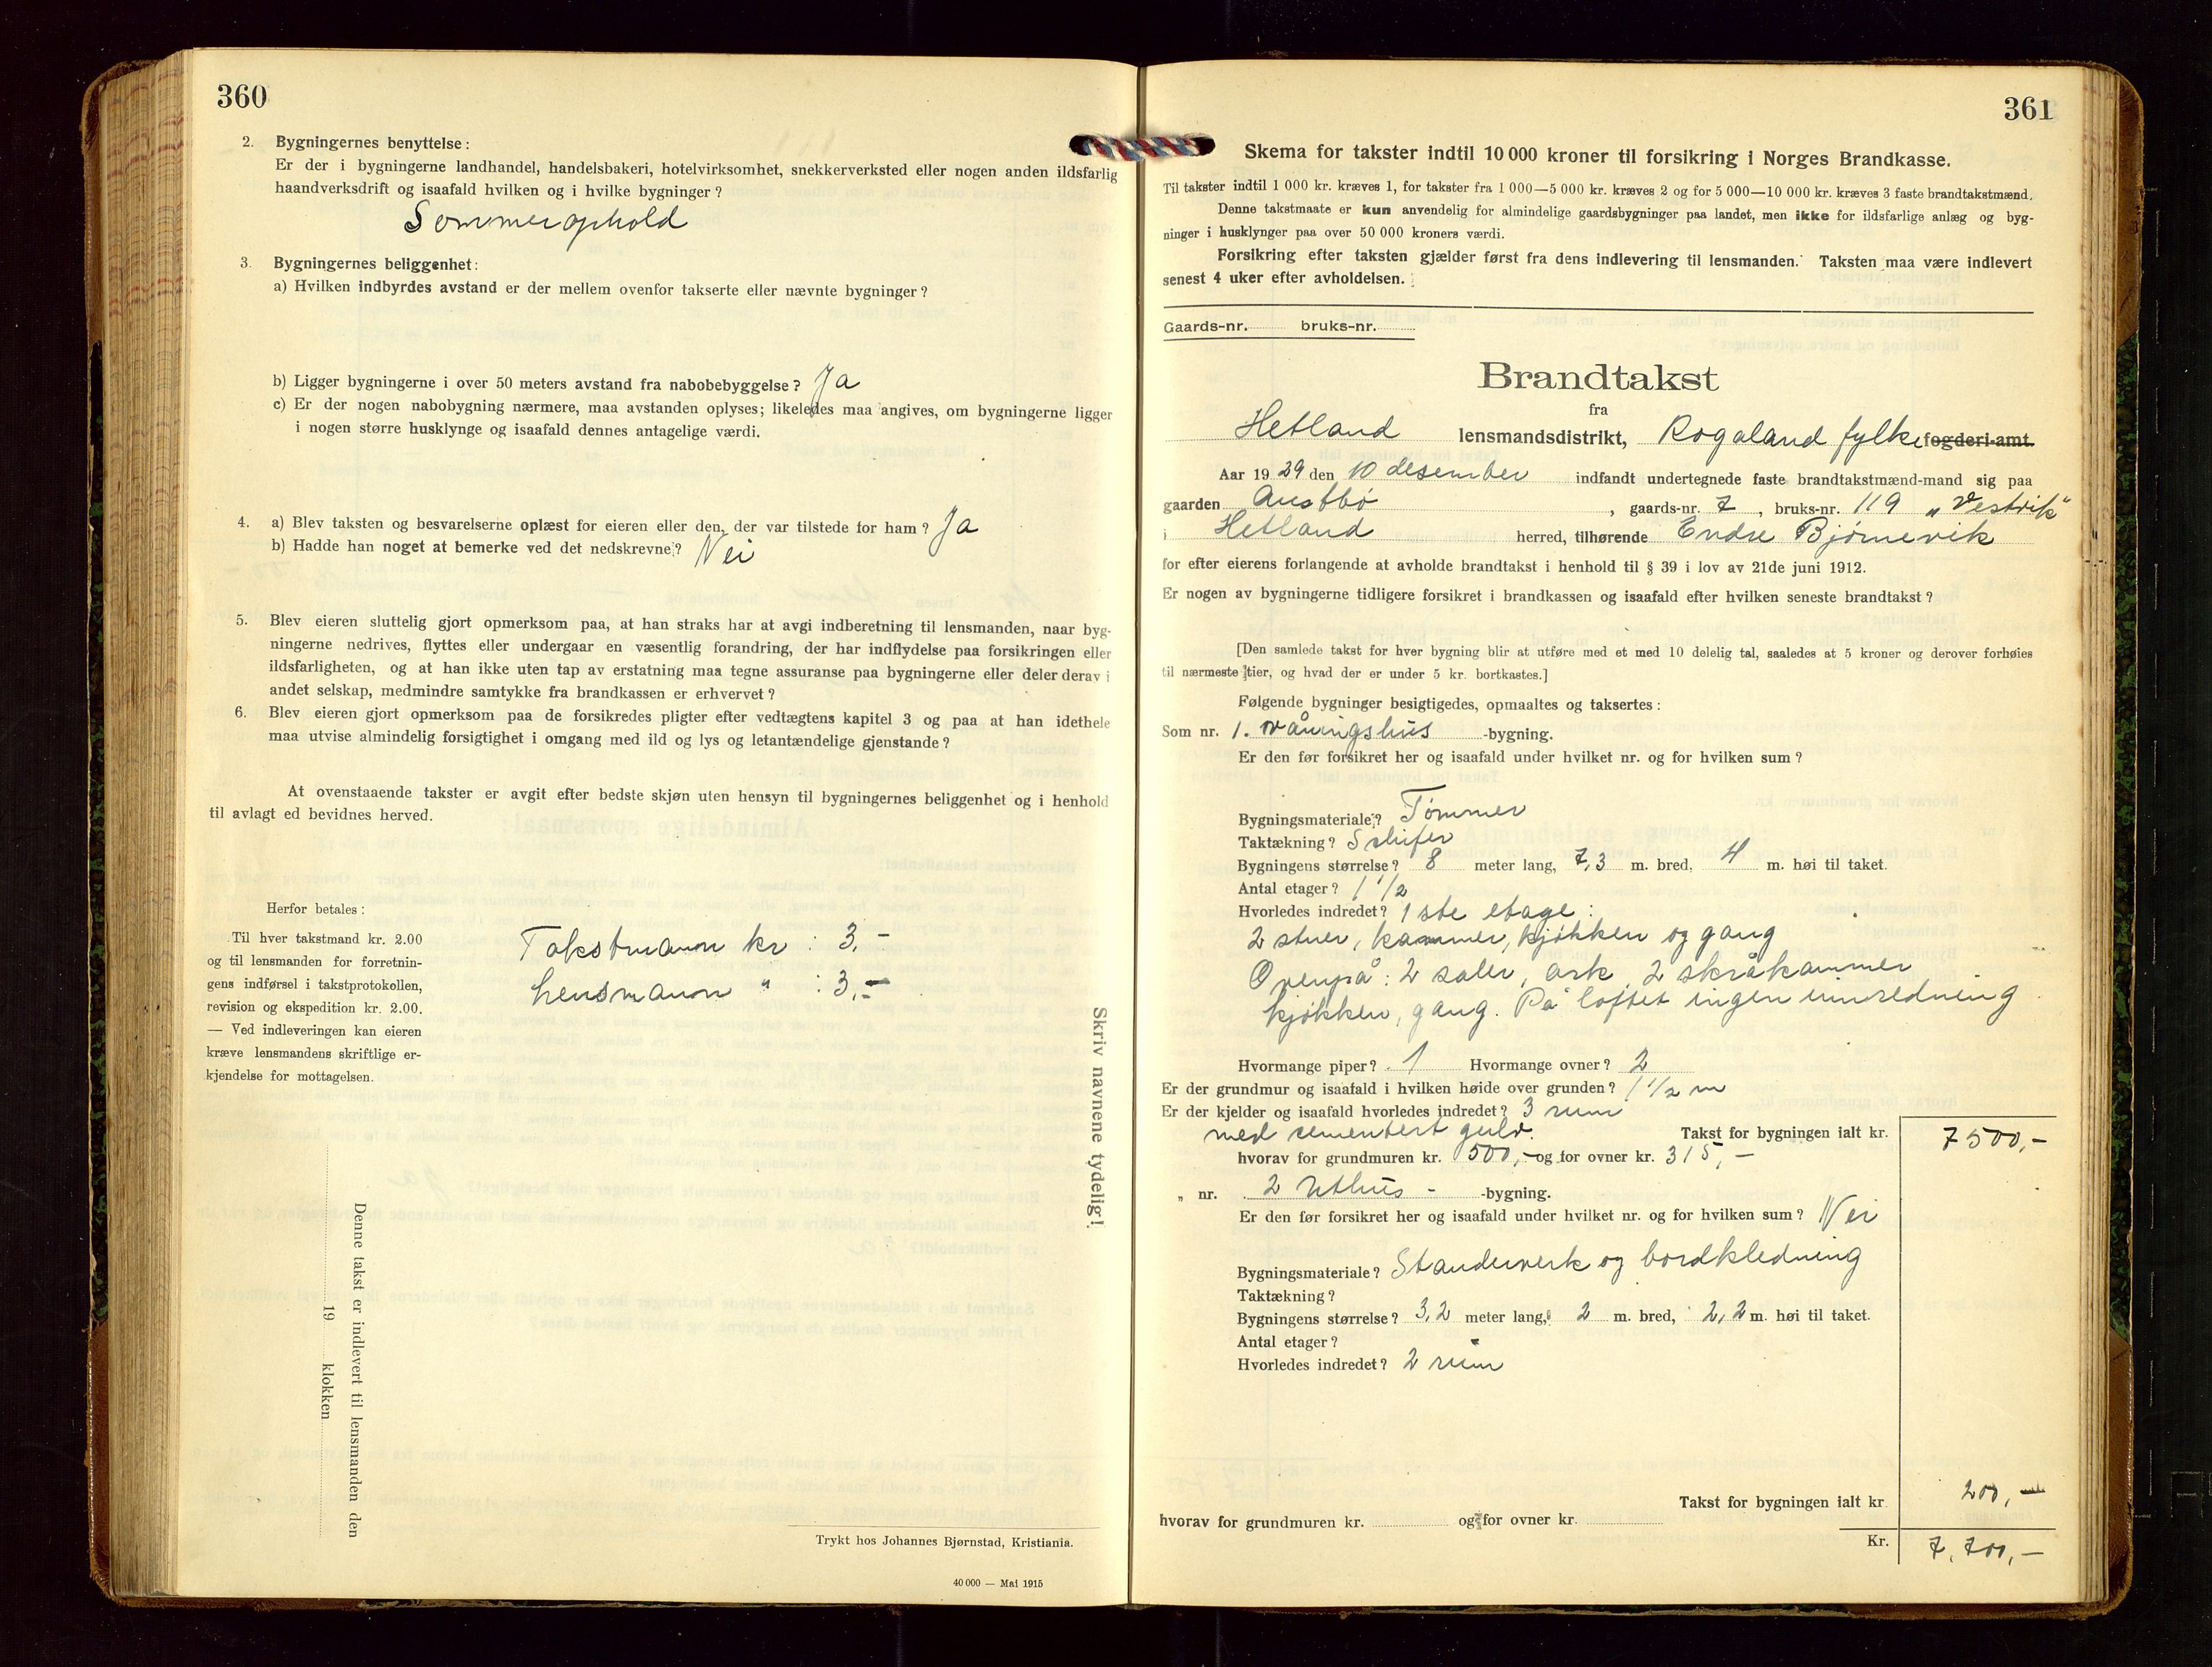 360
2. Bygningernes benyttelse:
Er der i bygningerne landhandel, handelsbakeri, hotelvirksomhet, snekkerverksted eller nogen anden ildsfarlig
haandverksdrift og isaafald hvilken og i hvilke bygninger?
Sommerophold
3. Bygningernes beliggenhet:
a) Hvilken indbyrdes avstand er der mellem ovenfor takserte eller nævnte bygninger?
b) Ligger bygningerne i over 50 meters avstand fra nabobebyggelse? Ja
c) Er der nogen nabobygning nærmere, maa avstanden oplyses; likeledes maa angives, om bygningerne ligger
i nogen større husklynge og isaafald dennes antagelige værdi.
4. a) Blev taksten og besvarelserne oplæst for eieren eller den, der var tilstede for ham? Ja
b) Hadde han noget at bemerke ved det nedskrevne? Nei
5. Blev eieren sluttelig gjort opmerksom paa, at han straks har at avgi indberetning til lensmanden, naar byg-
ningerne nedrives, flyttes eller undergaar en væsentlig forandring, der har indflydelse paa forsikringen eller
ildsfarligheten, og at han ikke uten tap av erstatning maa tegne assuranse paa bygningerne eller deler derav i
andet selskap, medmindre samtykke fra brandkassen er erhvervet?
6. Blev eieren gjort opmerksom paa de forsikredes pligter efter vedtægtens kapitel 3 og paa at han idethele
maa utvise almindelig forsigtighet i omgang med ild og lys og letantændelige gjenstande?
At ovenstaaende takster er avgit efter bedste skjøn uten hensyn til bygningernes beliggenhet og i henhold
til avlagt ed bevidnes herved.
Herfor betales:
Til hver takstmand kr. 2.00
og til lensmanden for forretnin-
gens indførsel i takstprotokollen,
revision og ekspedition kr. 2.00.
— Ved indleveringen kan eieren
kræve lensmandens skriftlige er-
kjendelse for mottagelsen.
Takstmann kr : 3,-
Lensmann " : 3,-
Skriv navnene tydelig!
Denne takst er indlevert til lensmanden den
19 klokken
Trykt hos Johannes Bjørnstad, Kristiania.
40 000 — Mai 1915
361
Skema for takster indtil 10 000 kroner til forsikring i Norges Brandkasse.
Til takster indtil 1 000 kr. kræves 1, for takster fra 1 000—5 000 kr. kræves 2 og for 5 000—10 000 kr. kræves 3 faste brandtakstmænd.
Denne takstmaate er kun anvendelig for almindelige gaardsbygninger paa landet, men ikke for ildsfarlige anlæg og byg-
ninger i husklynger paa over 50 000 kroners værdi.
Forsikring efter taksten gjælder først fra dens indlevering til lensmanden. Taksten maa være indlevert
senest 4 uker efter avholdelsen.
Gaards-nr. bruks-nr.
Brandtakst
fra
Hetland lensmandsdistrikt, Rogaland fylke fogderi-amt.
Aar 1929 den 10 desember indfandt undertegnede faste brandtakstmænd-mand sig paa
gaarden Austbø , gaards-nr. 7 , bruks-nr. 119 „Vestvik"
i Hetland herred, tilhørende Endre Bjørnevik
for efter eierens forlangende at avholde brandtakst i henhold til § 39 i lov av 21de juni 1912.
Er nogen av bygningerne tidligere forsikret i brandkassen og isaafald efter hvilken seneste brandtakst?
[Den samlede takst for hver bygning blir at utføre med et med 10 delelig tal, saaledes at 5 kroner og derover forhøies
til nærmeste tier, og hvad der er under 5 kr. bortkastes.]
Følgende bygninger besigtigedes, opmaaltes og taksertes:
Som nr. 1. våningshus -bygning.
Er den før forsikret her og isaafald under hvilket nr. og for hvilken sum?
Bygningsmateriale? Tømmer
Taktækning? Skifer
Bygningens størrelse? 8 meter lang, 7,3 m. bred, 4 m. høi til taket.
Antal etager? 1 1/2
Hvorledes indredet? 1ste etage:
2 stuer, kammer, kjøkken og gang
Ovenpå: 2 saler, ark, 2 skråkammer
kjøkken, gang. På loftet ingen innredning
Hvormange piper? 1 Hvormange ovner? 2
Er der grundmur og isaafald i hvilken høide over grunden? 1 1/2 m
Er der kjelder og isaafald hvorledes indredet? 3 rum
med cementert gulv. Takst for bygningen ialt kr. 7500,-
hvorav for grundmuren kr. 500,- og for ovner kr. 315,-
„ nr. 2 Uthus - -bygning.
Er den før forsikret her og isaafald under hvilket nr. og for hvilken sum? Nei
Bygningsmateriale? Standerverk og bordkledning
Taktækning?
Bygningens størrelse? 3,2 meter lang, 2 m. bred, 2,2 m. høi til taket.
Antal etager?
Hvorledes indredet? 2 rum
Takst for bygningen ialt kr. 200,-
hvorav for grundmuren kr. og for ovner kr.
Kr. 7,700,-